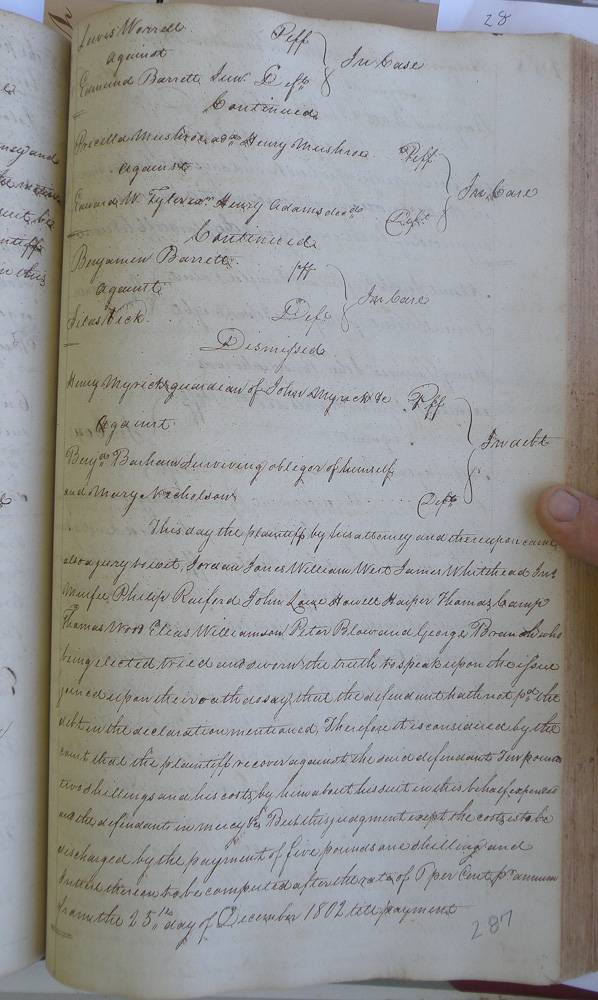 28
Lewis Worrell Plff
against In Case
Edmund Barrett Junr. Deft.
Continued
Pricilla Mushroe adx Henry Mushroe Plff
against In Case
Edward W. Tyler exr. Henry Adams decd. Deft.
Continued
Benjamin Barrett Plff
against In Case
Silas Kick Deft
Dismissed
Henry Myrick guardian of John Myrick &c Plff
against In debt
Benja. Barham Surviving obligor of himself
and Mary Nicholson Deft.
This day the plaintiff by his attorney and thereupon came
also a jury to wit, Jordan Jones William West James Whitehead
Philip Raiford John Howell Harper Thomas Camp
Thomas Elias Williamson Peter Blow and George Branch who
being elected tried and sworn the truth to speak upon the issue
joined upon their oath do say, that the defendant hath not pd. the
debt in the declaration mentioned, Therefore it is considered by the
court that the plaintiff recover against the said defendant Ten pounds
two shillings and his costs by him about his suit in this behalf expended
and the defendant in mercy &c. But this judgment except the costs is to be
discharged by the payment of five pounds one shilling and
Interest thereon to be computed after the rate of per Cent pr. annum
from the 25th. day of December 1802 till payment
287